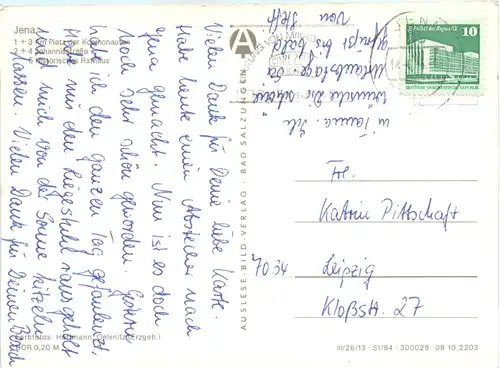 Jena
1 + 3 Am Platz der Kosmonauten
2 + 4 Johannisstraße
5 Historisches Rathaus
Vielen Dank für Deine liebe Karte.
Habe heute einen Abstecher nach
Jena gemacht. Nun ist es doch
noch sehr schön geworden. Gestern
hab ich den ganzen Tag gefaulenzt.
Habe mir den Liegestuhl rausgeholt
und mich von der Sonne kitzeln
lassen. Vielen Dank für Deinen
in Tanna. Ich
wünsche Dir schöne
Urlaubstage
grüßt bis bald
von Steff
AUSLESE-BILD-VERLAG · BAD SALZUNGEN
A
JENA
Palast der Republik
10
DEUTSCHE DEMOKRATISCHE REPUBLIK
Fr.
Katrin Pittschaft
7034 Leipzig
Kloßstr. 27
Farbfotos: Hoffmann, Oelsnitz (Erzgeb.)
DDR 0,20 M
III/26/13 - S1/84 - 300029 09 10 2203